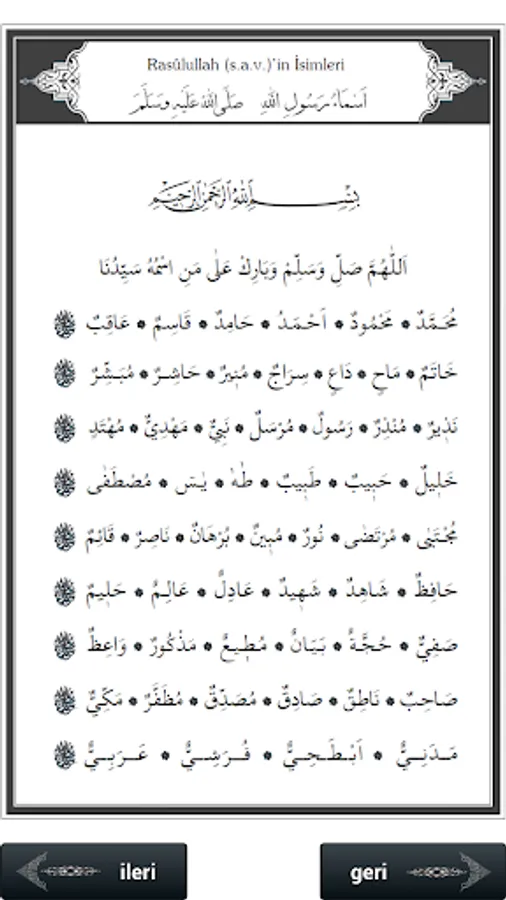 Rasûlullah (s.a.v.)'in İsimleri
اَسْمَاءُ رَسُولِ اللّٰهِ صَلَّى اللّٰهُ عَلَيْهِ وَسَلَّمَ
بِسْمِ اللّٰهِ الرَّحْمٰنِ الرَّحِيمِ
اَللّٰهُمَّ صَلِّ وَسَلِّمْ وَبَارِكْ عَلٰى مَنِ اسْمُهُ سَيِّدُنَا
مُحَمَّدٌ * مَحْمُودٌ * اَحْمَدُ * حَامِدٌ * قَاسِمٌ * عَاقِبٌ ﷺ
خَاتَمٌ * مَاحٍ * دَاعٍ * سِرَاجٌ * مُنِيرٌ * حَاشِرٌ * مُبَشِّرٌ ﷺ
نَذِيرٌ * مُنْذِرٌ * رَسُولٌ * مُرْسَلٌ * نَبِيٌّ * مَهْدِيٌّ * مُهْتَدٍ ﷺ
خَلِيلٌ * حَبِيبٌ * طَبِيبٌ * طٰهٰ * يٰسٓ * مُصْطَفٰى ﷺ
مُجْتَبٰى * مُرْتَضٰى * نُورٌ * مُبِينٌ * بُرْهَانٌ * نَاصِرٌ * قَائِمٌ ﷺ
حَافِظٌ * شَاهِدٌ * شَهِيدٌ * عَادِلٌ * عَالِمٌ * حَلِيمٌ ﷺ
صَفِيٌّ * حُجَّةٌ * بَيَانٌ * مُطِيعٌ * مَذْكُورٌ * وَاعِظٌ ﷺ
صَاحِبٌ * نَاطِقٌ * صَادِقٌ * مُصَدِّقٌ * مُظَفَّرٌ * مَكِّيٌّ ﷺ
مَدَنِيٌّ * اَبْطَحِيٌّ * قُرَشِيٌّ * عَرَبِيٌّ ﷺ
ileri
geri